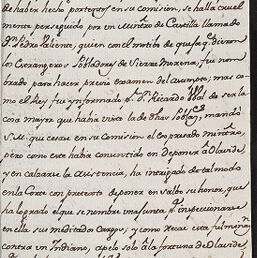 de haber hecho portentos en su comision, se halla cruel
mente perseguido por un Ministro de Castilla llamado
Dn. Pedro Valiente, quien con el motibo de quexa q.e dieron
los Extrangeros Pobladores de Sierra Morena, fue nom
brado para hacer previo examen del asumpto, mas co=
mo el Rey fue ynformado pr. Dn. Ricardo Wall de ser la
cosa mayor que habia visto la de dhas Poblac.s mandó
S.M. que cesase en su Comision el expresado ministro,
pero como este habia convenido en deponer á Olavide,
y en calzarse la Asistencia, ha intrigado de tal modo
en la Corte con pretexto de poner en salvo su honor, que
ha logrado el que se nombre una Junta q.e inspeccionare
en ella sus meditados Cargos, y como recae esta
contra un Indiano, apelo solo á la fortuna de Olavide